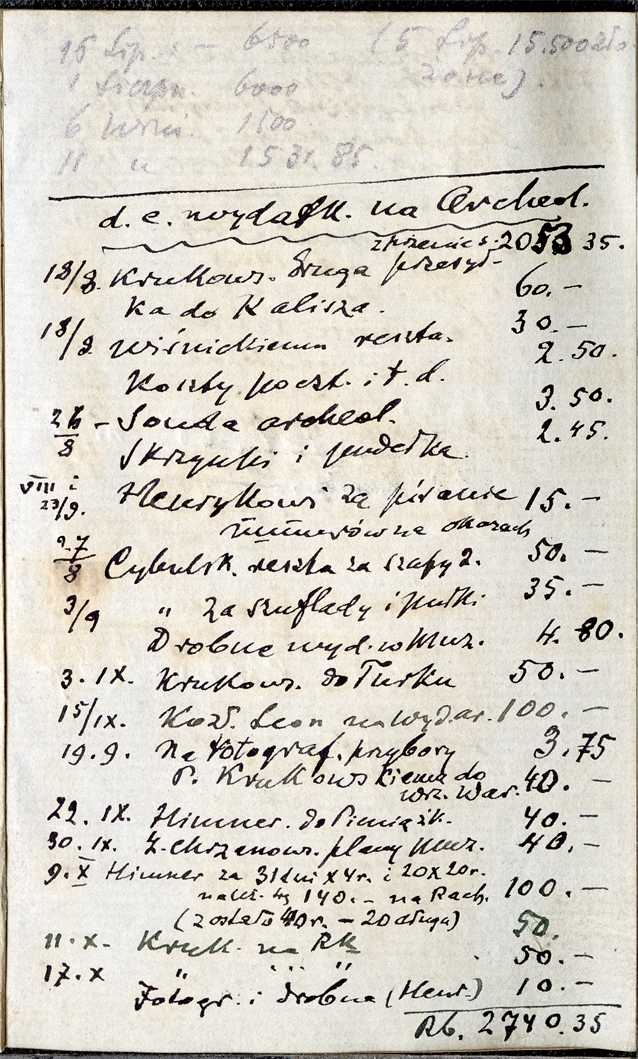 15 Lip. - 6500 (5 Lip. 15.500 zło
1 Sierpn. 6000 żone).
6 Wrz. 1500
11 " 1531.85.
d. c. wydatk. na Archeol.
z przenies. 2053 35.
18/8. Krukows. Druga przesył-
ka do Kalisza. 60.-
18/8. Wiśnickiemu reszta. 30.-
Koszty poczt. i t. d. 2.50.
26/8 - Sonda archeol. 3.50.
Skrzynki i pudełka 2.45.
VIII i 23/9. Henrykowi za pisanie 15.-
numerów na okazach
27/8 Cybulsk. reszta za szafy 2. 50.-
3/9 " za szuflady i półki 35.-
Drobne wyd. w Muz. 4.80.
3. IX. Krukows. do Turku 50.-
15/IX. Kozł. Leon na wydat. 100.-
19.9. Na fotograf. przybory 3.75
P. Krukowskiemu do
wrz. War. 40.-
29. IX. Himner. do Pieniążk. 40.-
30. IX. Z. Chrzanows. plany Muz. 40.-
9. X Himner za 31 dni x 4r. i 20 x 20r.
należ. się 140.- na Rach. 100.-
(zostało 40 r. - 20 długu)
11. X - Kruk. na Rk 50.
17. X " " " 50.-
Fotogr. i drobne (Henr.) 10.-
Rb. 2740.35